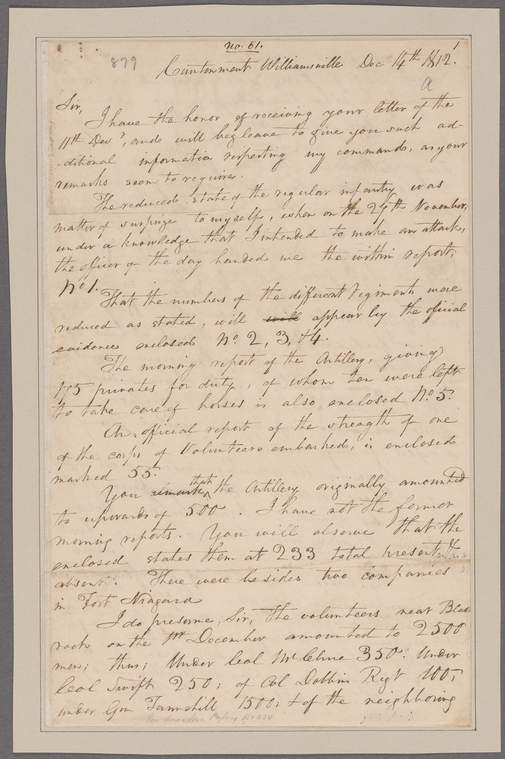 no. 61.
1
879
Cantonment Williamsville Dec 14th 1812.
a
Sir,
I have the honor of receiving your letter of the
11th Decr, and will beg leave to give you such ad-
-ditional information respecting my command, as your
remarks seem to require.
The reduced state of the regular infantry was
matter of surprize to myself, when on the 27th November,
under a knowledge that I intended to make an attack,
the officer of the day handed me the within report,
No 1.
That the numbers of the different regiments were
reduced as stated, will will appear by the official
evidence enclosed No 2, 3, & 4.
The morning report of the Artillery, giving
175 privates for duty, of whom ten were left
to take care of horses is also enclosed No. 5.
An official report of the strength of one
of the corps of Volunteers embarked, is enclosed
marked 55.
You remark that the Artillery originally amounted
to upwards of 500. I have not the former
morning reports. You will observe that the
enclosed states them at 233 total present &
absent. There were besides two companies
in Fort Niagara
I do presume, Sir, the volunteers near Black
rock on the 1st December amounted to 2500
men; thus; Under Coal McClure 350; Under
Coal Swift 250; of Col Dobbins Regt 100;
under Gen Tannehill 1500; & of the neighboring